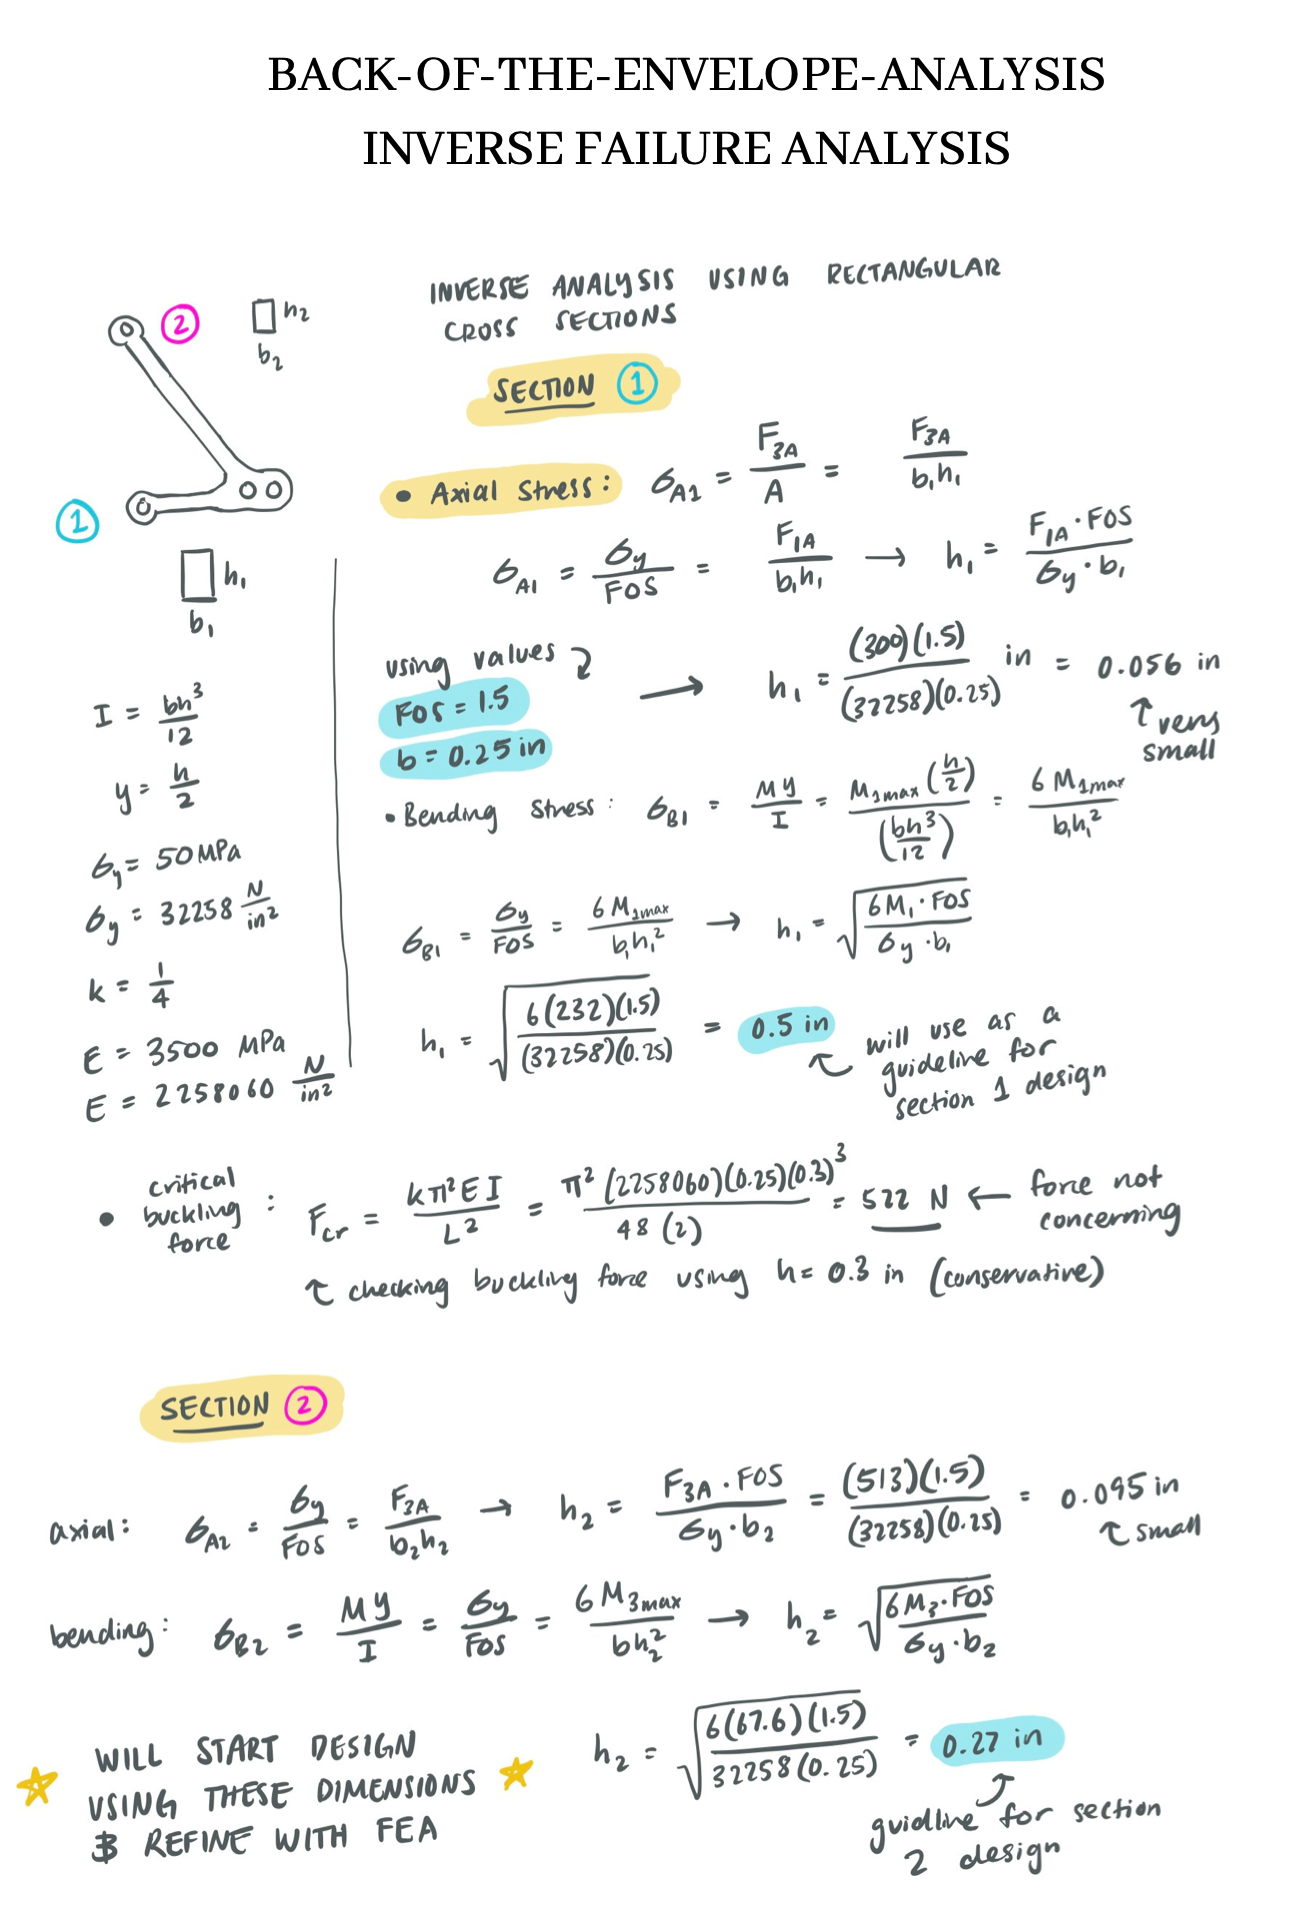 BACK-OF-THE-ENVELOPE-ANALYSIS
INVERSE FAILURE ANALYSIS
INVERSE ANALYSIS USING RECTANGULAR
CROSS SECTIONS
② h2
b2
①
h1
b1
I = bh³/12
y = h/2
σy = 50 MPa
σy = 32258 N/in²
k = 1/4
E = 3500 MPa
E = 2258060 N/in²
SECTION ①
• Axial Stress: σA1 = F3A/A = F3A/b1h1
σA1 = σy/FOS = F1A/b1h1 → h1 = F1A·FOS/σy·b1
using values
FOS = 1.5
b = 0.25 in
→ h1 = (300)(1.5)/(32258)(0.25) in = 0.056 in
↑ very
small
• Bending Stress: σB1 = My/I = M1max(h/2)/(bh³/12) = 6 M1max/b1h1²
σB1 = σy/FOS = 6 M1max/b1h1² → h1 = √(6M1·FOS/σy·b1)
h1 = √(6(232)(1.5)/(32258)(0.25)) = 0.5 in
will use as a
guideline for
section 1 design
• critical
buckling
force : Fcr = kπ²EI/L² = π²(2258060)(0.25)(0.3)³/48(2) = 522 N ← force not
concerning
↑ checking buckling force using h = 0.3 in (conservative)
SECTION ②
axial: σA2 = σy/FOS = F3A/b2h2 → h2 = F3A·FOS/σy·b2 = (513)(1.5)/(32258)(0.25) = 0.095 in
↑ small
bending: σB2 = My/I = σy/FOS = 6 M3max/bh2² → h2 = √(6M3·FOS/σy·b2)
h2 = √(6(67.6)(1.5)/32258(0.25)) = 0.27 in
guidline for section
2 design
WILL START DESIGN
USING THESE DIMENSIONS
& REFINE WITH FEA